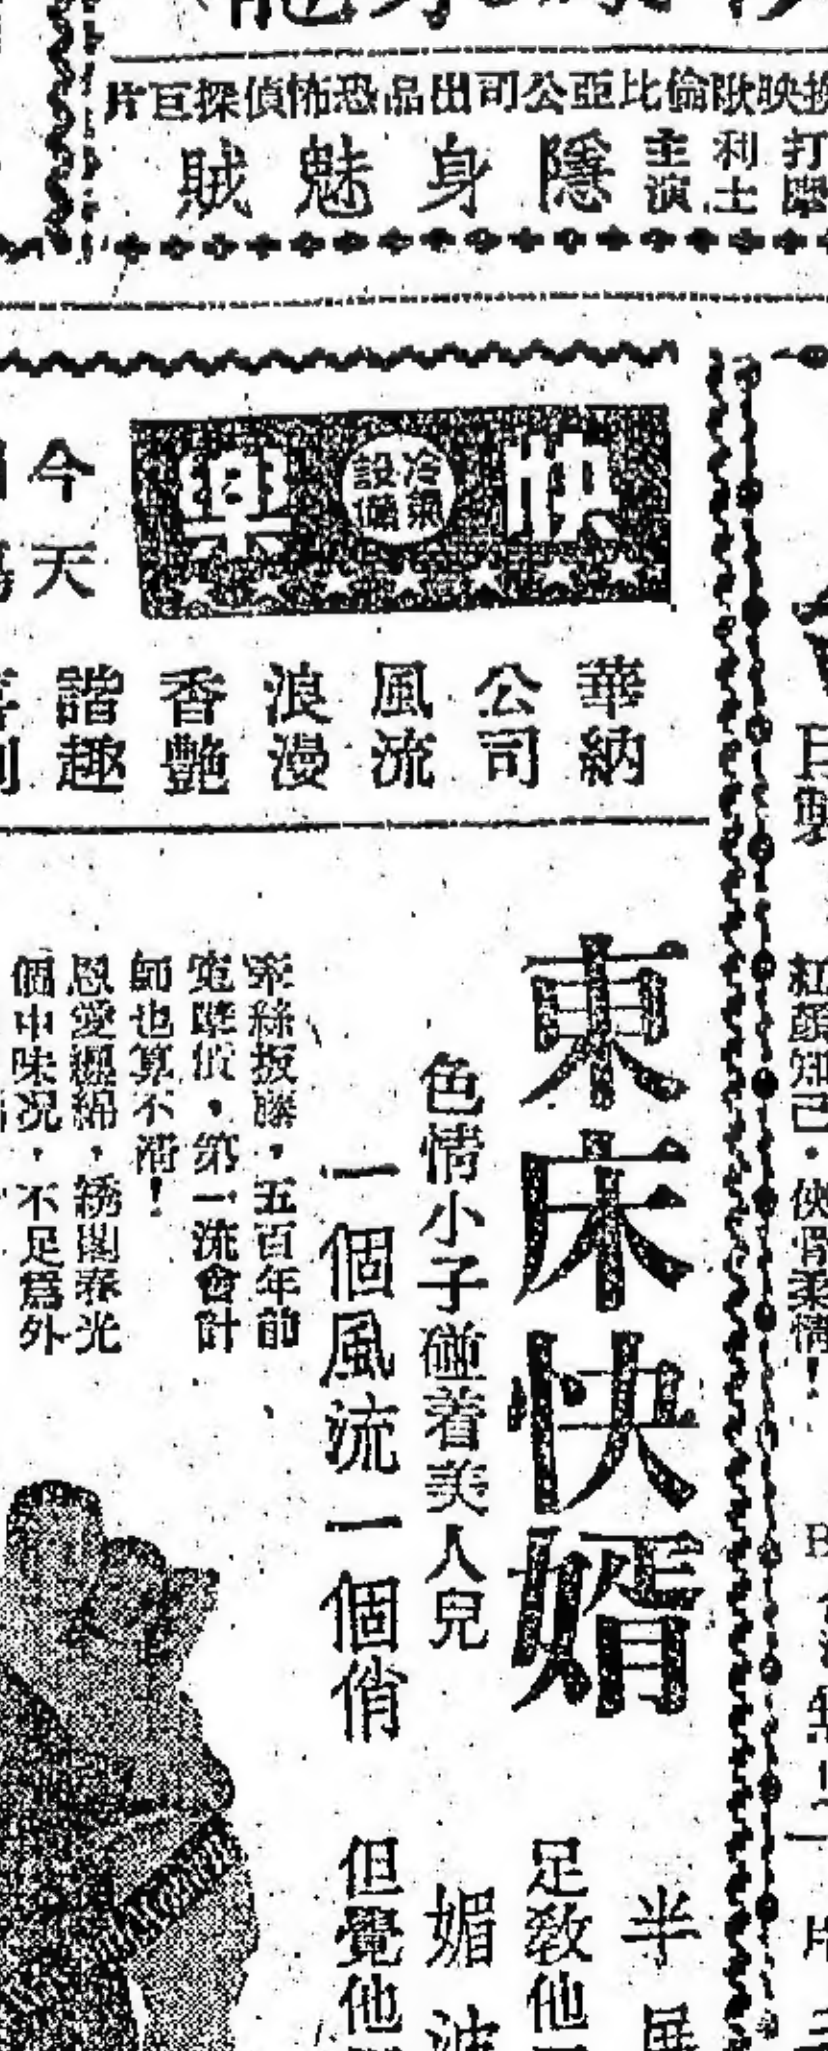 映歐倫比亞公司出品恐怖偵探巨片
利士
主演
隱身魅賊
快樂
冷氣設備
今天
華納
公司
風流
浪漫
香艷
諧趣
東床快婿
色情小子碰着美人兒
一個風流一個俏
牽絲扳藤，五百年前
冤孽債，第一流會計
師也算不清！
恩愛纏綿，綉閣春光
個中味況，不足爲外
半
足教他
媚
但覺他
紅顏知己，俠骨柔情！